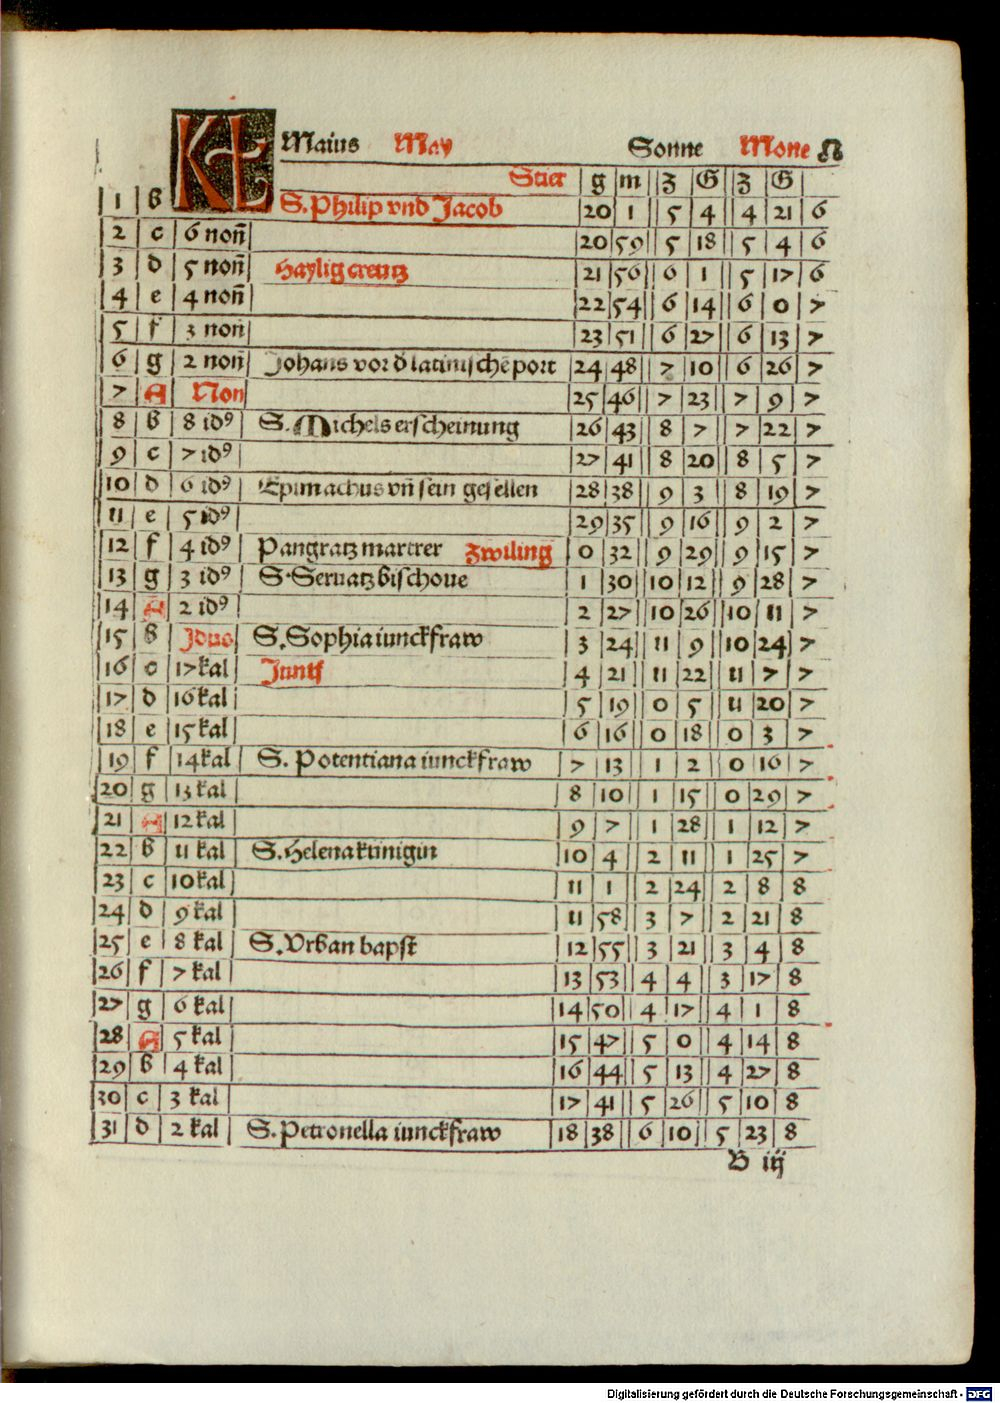 KL Maius May Sonne Mone ☊
Stier g m Z G Z G
1 b S. Philip vnd Jacob 20 1 5 4 4 21 6
2 c 6 non̄ 20 59 5 18 5 4 6
3 d 5 non̄ Haylig creutz 21 56 6 1 5 17 6
4 e 4 non̄ 22 54 6 14 6 0 7
5 f 3 non 23 51 6 27 6 13 7
6 g 2 non̄ Johans vor d latinischē port 24 48 7 10 6 26 7
7 A Non 25 46 7 23 7 9 7
8 b 8 idꝰ S. Michels erscheinung 26 43 8 7 7 22 7
9 c 7 idꝰ 27 41 8 20 8 5 7
10 d 6 idꝰ Epimachus vn̄ sein gesellen 28 38 9 3 8 19 7
11 e 5 idꝰ 29 35 9 16 9 2 7
12 f 4 idꝰ Pangratz martrer Zwiling 0 32 9 29 9 15 7
13 g 3 idꝰ S. Seruatz bischoue 1 30 10 12 9 28 7
14 A 2 idꝰ 2 27 10 26 10 11 7
15 b Jdus S. Sophia iunckfraw 3 24 11 9 10 24 7
16 c 17 kal Junii 4 21 11 22 11 7 7
17 d 16 kal 5 19 0 5 11 20 7
18 e 15 kal 6 16 0 18 0 3 7
19 f 14 kal S. Potentiana iunckfraw 7 13 1 2 0 16 7
20 g 13 kal 8 10 1 15 0 29 7
21 A 12 kal 9 7 1 28 1 12 7
22 b 11 kal S. Helena künigin 10 4 2 11 1 25 7
23 c 10 kal 11 1 2 24 2 8 8
24 d 9 kal 11 58 3 7 2 21 8
25 e 8 kal S. Vrban bapst 12 55 3 21 3 4 8
26 f 7 kal 13 53 4 4 3 17 8
27 g 6 kal 14 50 4 17 4 1 8
28 A 5 kal 15 47 5 0 4 14 8
29 b 4 kal 16 44 5 13 4 27 8
30 c 3 kal 17 41 5 26 5 10 8
31 d 2 kal S. Petronella iunckfraw 18 38 6 10 5 23 8
B iij
Digitalisierung gefördert durch die Deutsche Forschungsgemeinschaft - DFG